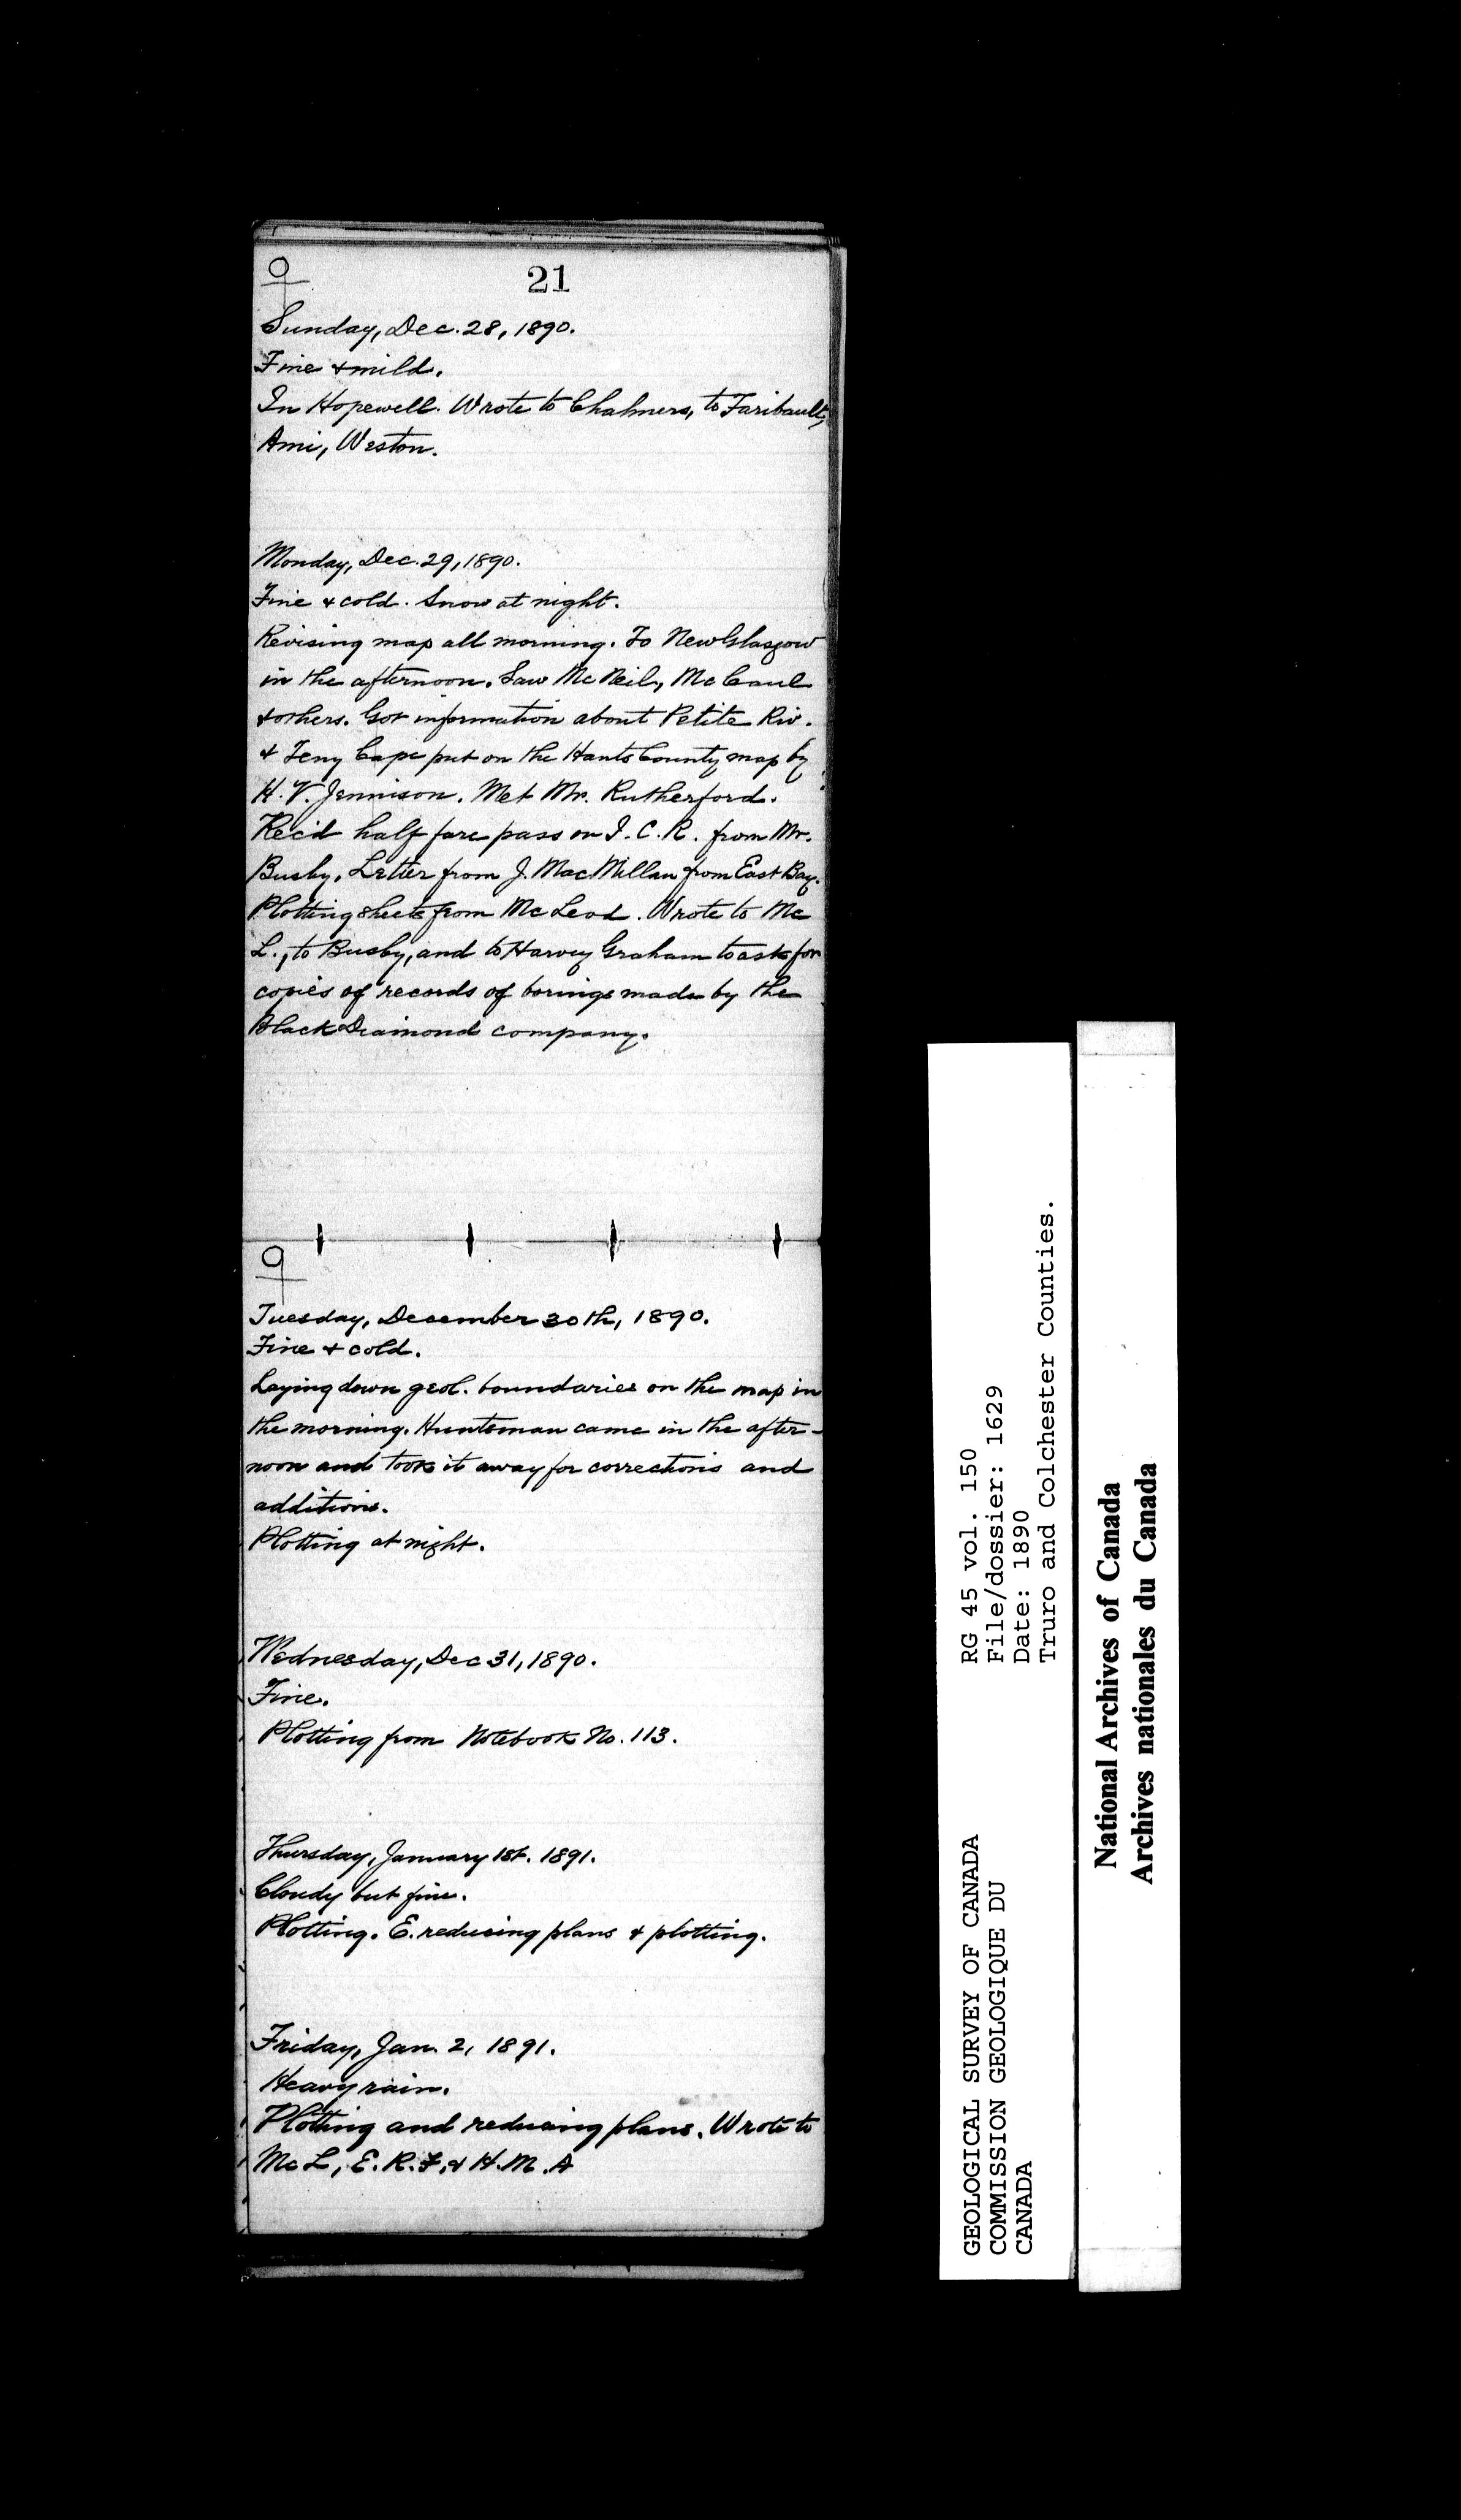 21
Sunday, Dec. 28, 1890.
Fine & mild.
In Hopewell. Wrote to Chalmers, to Faribault,
Ami, Weston.
Monday, Dec. 29, 1890.
Fine & cold. Snow at night.
Revising map all morning. To New Glasgow
in the afternoon. Saw McNeil, McCaul
& others. Got information about Petite Riv.
& Teny Cape put on the Hants County map by
H. V. Jennison. Met Mr. Rutherford.
Rec'd half fare pass on I. C. R. from Mr.
Busby. Letter from J. MacMillan from East Bay.
Plotting sheets from McLeod. Wrote to Mc
L., to Busby, and to Harvey Graham to ask for
copies of records of borings made by the
Black Diamond company.
Tuesday, December 30th, 1890.
Fine & cold.
Laying down geol. boundaries on the map in
the morning. Huntsman came in the after-
noon and took it away for corrections and
additions.
Plotting at night.
Wednesday, Dec 31, 1890.
Fine.
Plotting from Notebook No. 113.
Thursday, January 1st. 1891.
Cloudy but fine.
Plotting. E. reducing plans & plotting.
Friday, Jan. 2, 1891.
Heavy rain.
Plotting and reducing plans. Wrote to
Mc L, E. R. F, & H. M. A
GEOLOGICAL SURVEY OF CANADA
COMMISSION GEOLOGIQUE DU
CANADA
RG 45 vol. 150
File/dossier: 1629
Date: 1890
Truro and Colchester Counties.
National Archives of Canada
Archives nationales du Canada